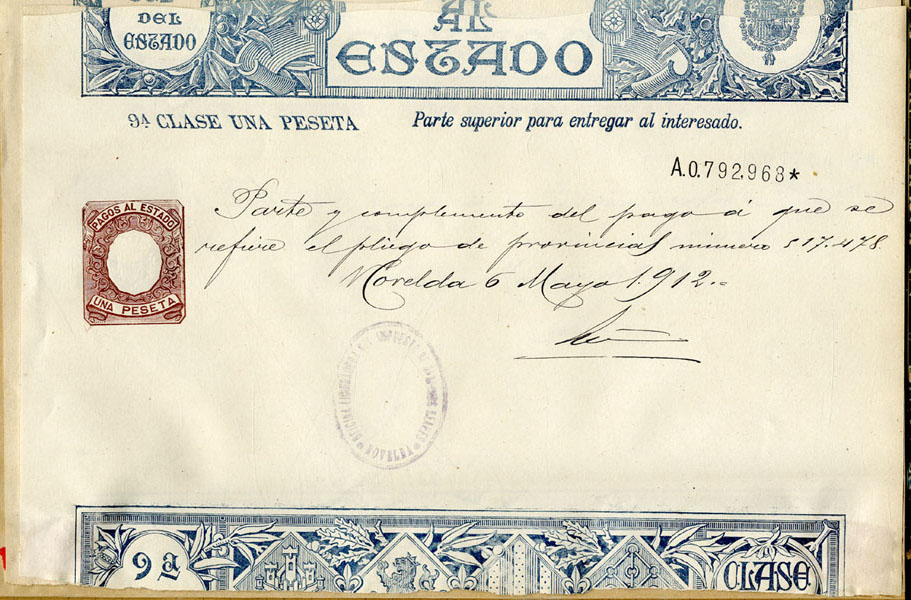 DEL
ESTADO
AL
ESTADO
9ª CLASE UNA PESETA
Parte superior para entregar al interesado.
A.0.792,968*
PAGOS AL ESTADO
UNA PESETA
Parte y complemento del pago á que se
refiere el pliego de provincias número 517.478
Novelda 6 Mayo 1.912.=
NOVELDA
9ª
CLASE